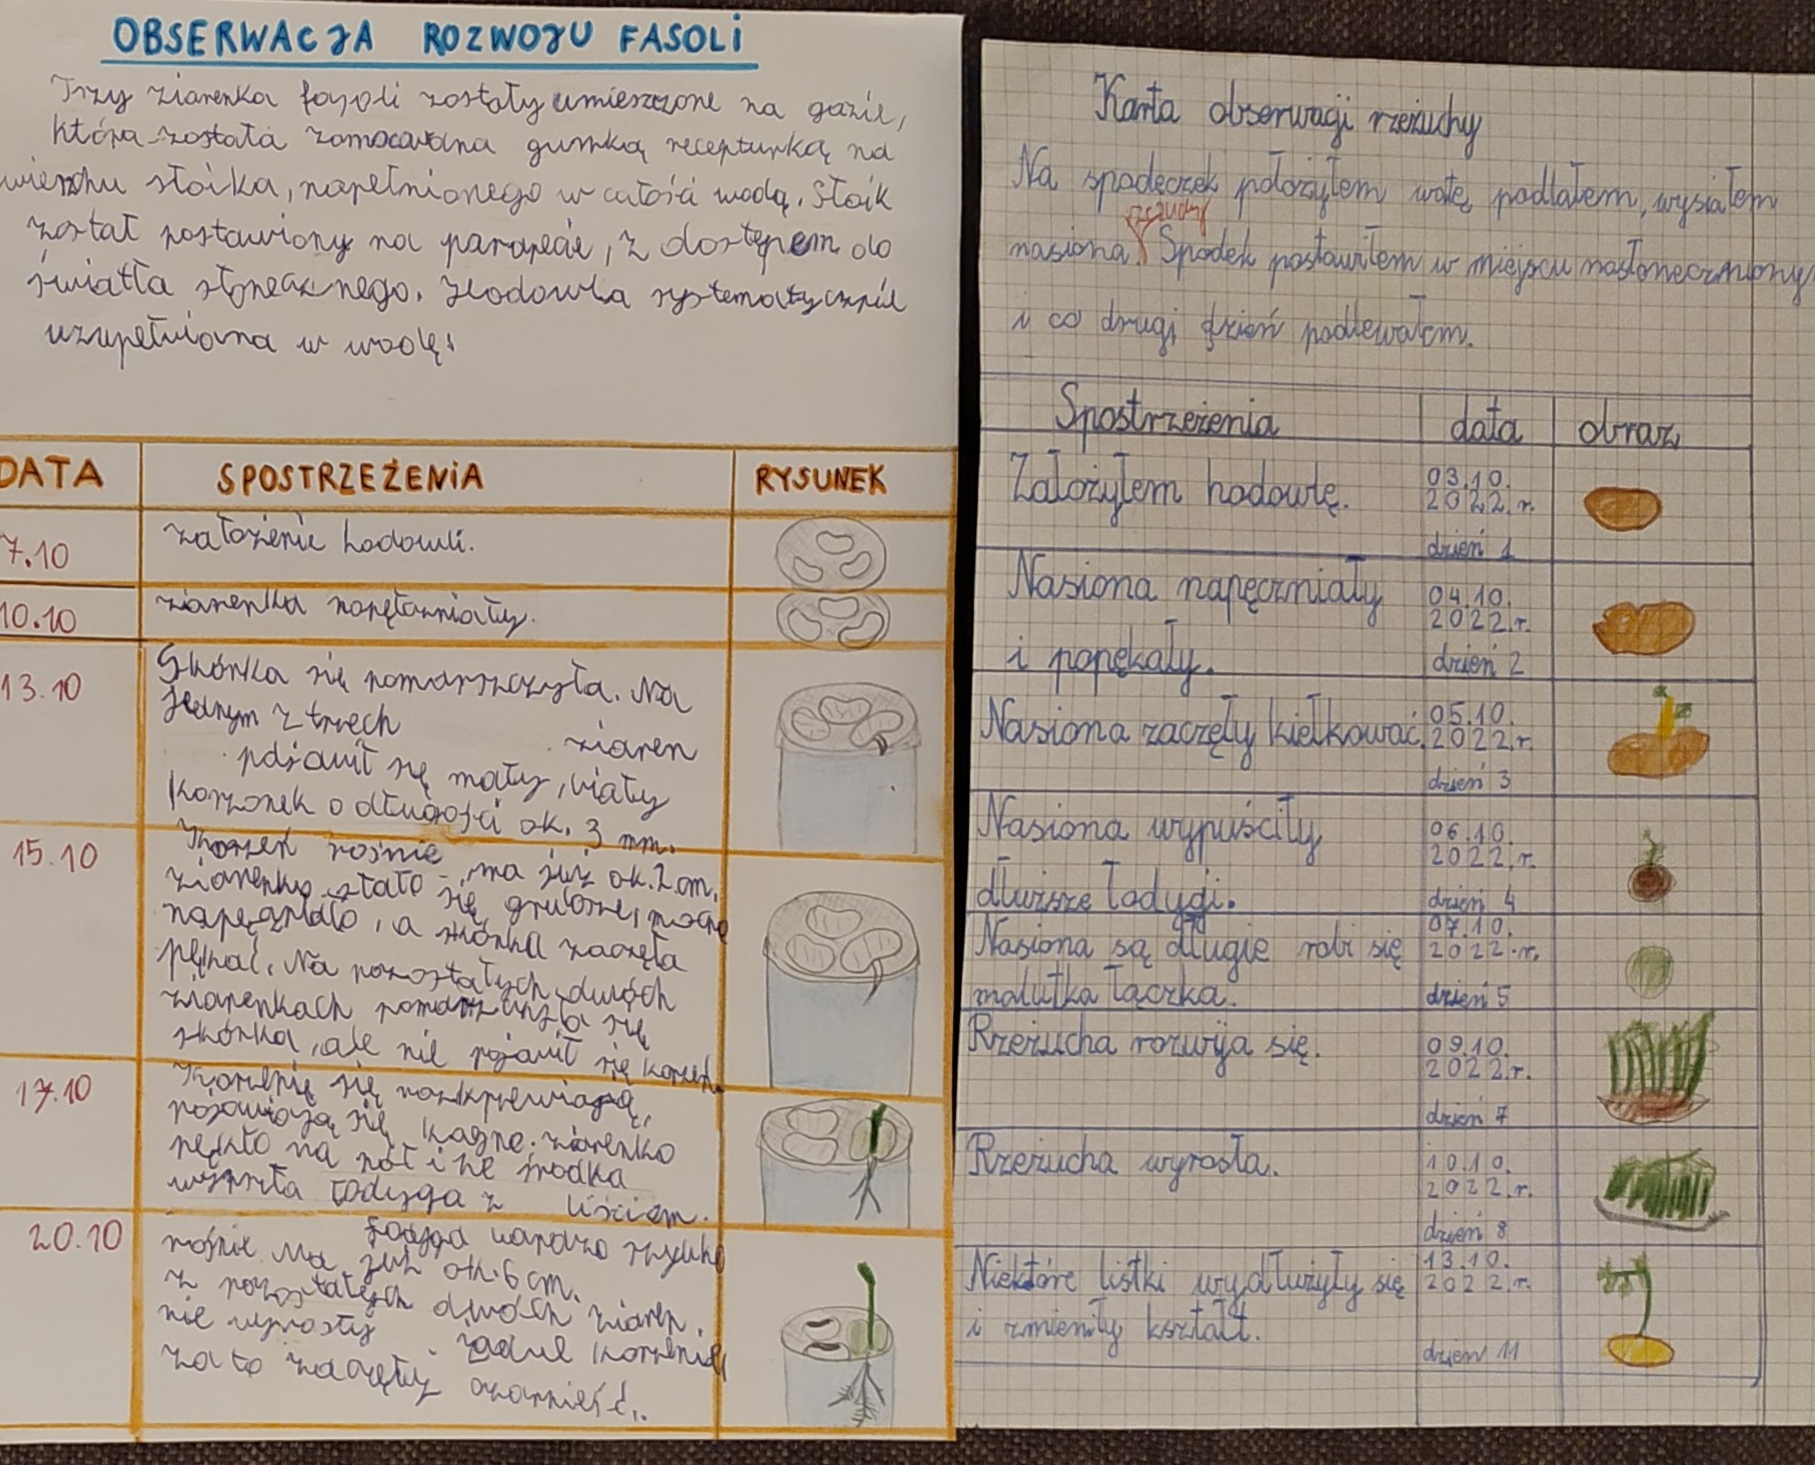 OBSERWACJA ROZWOJU FASOLI
Trzy ziarenka fasoli zostały umieszzone na gazie,
która została zamocowana gumką recepturką na
wierzchu słoika, napełnionego w całości wodą. Słoik
został postawiony na parapecie, z dostępem do
światła słonecznego. Hodowla systematycznie
uzupełniana w wodę!
DATA SPOSTRZEŻENIA RYSUNEK
7.10 założenie hodowli.
10.10 ziarenka napęczniały.
13.10 Skórka się pomarszczyła. Na
jednym z trzech
ziaren
pojawił się mały, biały
korzonek o długości ok. 3 mm.
15.10 Korzeń rośnie - ma już ok. 2 cm.
ziarenko stało się grubsze, mocno
napęczniało, a skórka zaczęła
pękać. Na pozostałych dwóch
ziarenkach pomarszczyła się
skórka, ale nie pojawił się korzeń.
17.10 Korzenie się rozkrzewiają,
pojawiają się ziarenko
pękło na pół i ze środka
wyszła łodyga z liściem.
20.10 Łodyga bardzo szybko
rośnie. Ma już ok. 6 cm.
z pozostałych dwóch ziaren
nie wyrosły żadne korzenie,
za to zaczęły czarnieć.
Karta obserwacji rzeżuchy
Na spodeczek położyłem watę, podlałem, wysiałem
rzeżuchy
nasiona. Spodek postawiłem w miejscu nasłonecznionym
i co drugi dzień podlewałem.
Spostrzeżenia data obraz
Założyłem hodowlę. 03.10.
2022.r.
dzień 1
Nasiona napęczniały
i popękały. 04.10.
2022.r.
dzień 2
Nasiona zaczęły kiełkować. 05.10.
2022.r.
dzień 3
Nasiona wypuściły
dłuższe łodygi. 06.10.
2022.r.
dzień 4
Nasiona są długie robi się
malutka łączka. 07.10.
2022.r.
dzień 5
Rzeżucha rozwija się. 09.10.
2022.r.
dzień 7
Rzeżucha wyrosła. 10.10.
2022.r.
dzień 8
Niektóre listki wydłużyły się
i zmieniły kształt. 13.10.
2022.r.
dzień 11